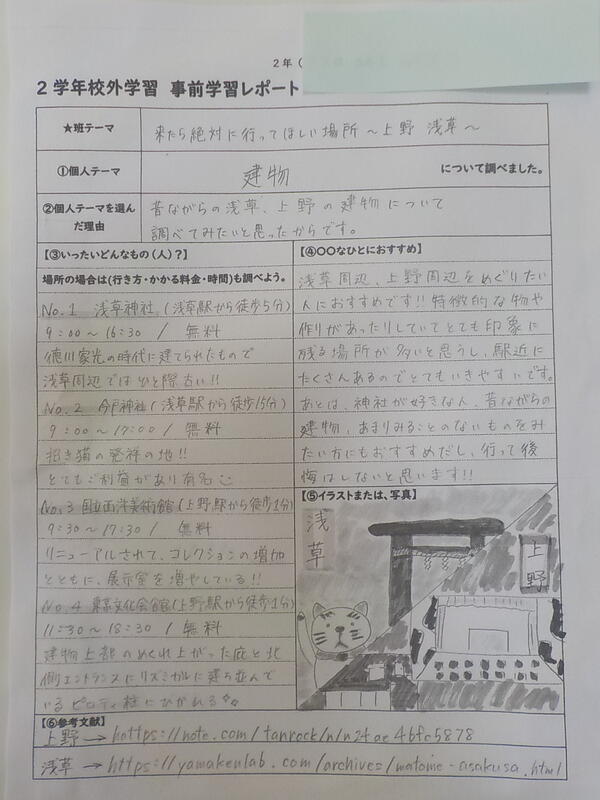 2年（
2学年校外学習 事前学習レポート
★班テーマ
来たら絶対に行ってほしい場所～上野 浅草～
①個人テーマ
建物
について調べました。
②個人テーマを選んだ理由
昔ながらの浅草、上野の建物について
調べてみたいと思ったからです。
【③いったいどんなもの(人)?】
場所の場合は(行き方・かかる料金・時間)も調べよう。
No.1 浅草神社(浅草駅から徒歩5分)
9:00～16:30 / 無料
徳川家光の時代に建てられたもので
浅草周辺ではひと際古い!!
No.2 今戸神社(浅草駅から徒歩15分)
9:00～17:00 / 無料
招き猫の発祥の地!!
とてもご利益があり有名
No.3 国立西洋美術館(上野駅から徒歩1分)
9:30～17:30 / 無料
リニューアルされて、コレクションの増加
とともに、展示室を増やしている!!
No.4 東京文化会館(上野駅から徒歩1分)
11:30～18:30 / 無料
建物上部のめくれ上がった庇と北
側エントランスにリズミカルに建ち並んで
いるピロティ柱にひかれる☆☆
【④〇〇なひとにおすすめ】
浅草周辺、上野周辺をめぐりたい
人におすすめです!!特徴的な物や
作りがあったりしていてとても印象に
残る場所が多いと思うし、駅近に
たくさんあるのでとてもいきやすいです。
あとは、神社が好きな人、昔ながらの
建物、あまりみることのないものをみ
たい方にもおすすめだし、行って後
悔はしないと思います!!
【⑤イラストまたは、写真】
浅草
上野
【⑥参考文献】
上野→https://note.com/tanrock/n/n24ae4bfc5878
浅草→https://yamakenlab.com/archives/matome-asakusa.html